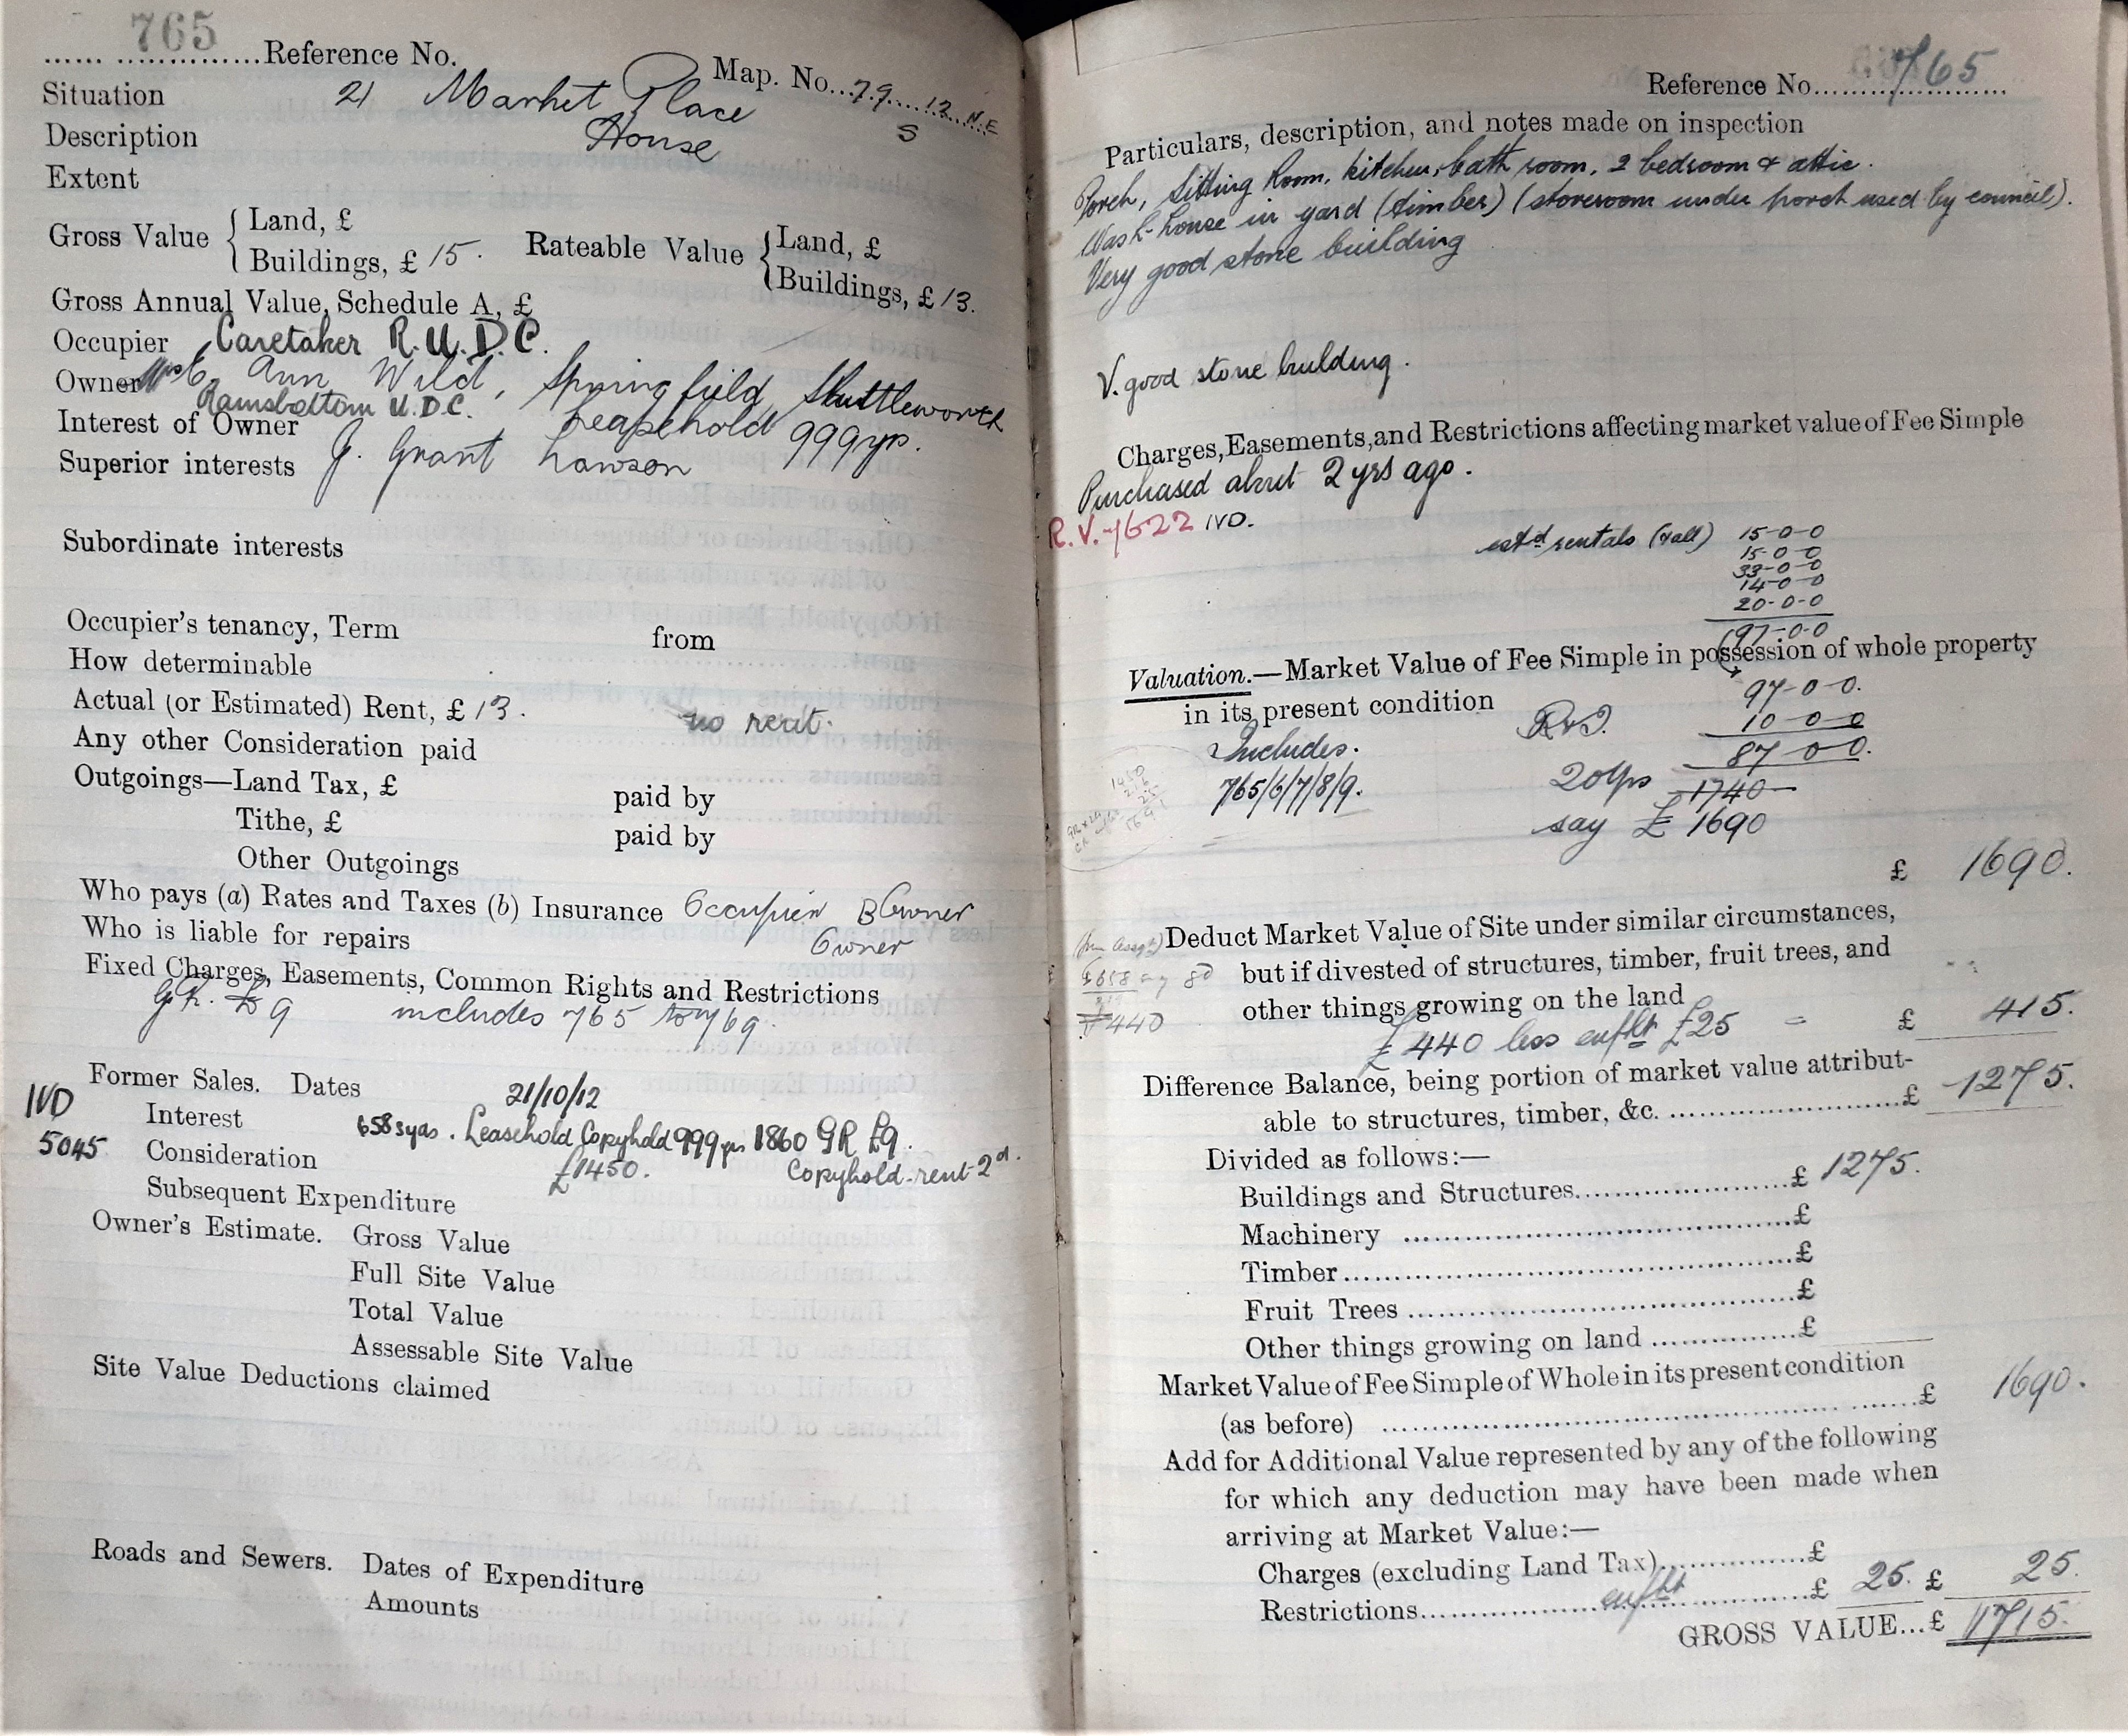 765
Reference No.
Map. No. 79 12 N.E
S
Situation 21 Market Place
Description House
Extent
Gross Value { Land, £
Buildings, £ 15.
Rateable Value { Land, £
Buildings, £ 13.
Gross Annual Value, Schedule A, £
Occupier Caretaker R.U.D.C.
Owner Ann Wild, Springfield, Shuttleworth
Ramsbottom U.D.C.
Interest of Owner Leasehold 999 yrs.
Superior interests J. Grant Lawson
Subordinate interests
Occupier's tenancy, Term from
How determinable
Actual (or Estimated) Rent, £ 13. no rent.
Any other Consideration paid
Outgoings—Land Tax, £ paid by
Tithe, £ paid by
Other Outgoings
Who pays (a) Rates and Taxes (b) Insurance Occupier B Owner
Who is liable for repairs Owner
Fixed Charges, Easements, Common Rights and Restrictions
G.R. £9 includes 765 to 769.
Former Sales. Dates 21/10/12
IVD
Interest 658 syds. Leasehold Copyhold 999 yrs 1860 GR £9.
5045
Consideration £1450. Copyhold-rent-2d.
Subsequent Expenditure
Owner's Estimate. Gross Value
Full Site Value
Total Value
Assessable Site Value
Site Value Deductions claimed
Roads and Sewers. Dates of Expenditure
Amounts
Reference No. 765
Particulars, description, and notes made on inspection
Porch, Sitting Room, kitchen, bath room, 2 bedroom & attic.
Wash-house in yard (timber) (storeroom under porch used by council).
Very good stone building
V. good stone building.
Charges, Easements, and Restrictions affecting market value of Fee Simple
Purchased about 2 yrs ago.
R.V.-1622 IVD.
estd rentals (all) 15-0-0
15-0-0
33-0-0
14-0-0
20-0-0
97-0-0
Valuation.—Market Value of Fee Simple in possession of whole property
in its present condition
97-0-0.
10-0-0
Includes. 87-0-0.
765/6/7/8/9. 20 Yps 1740
say £ 1690
£ 1690.
Deduct Market Value of Site under similar circumstances,
but if divested of structures, timber, fruit trees, and
other things growing on the land
£440
£440 less £25 = £ 415.
Difference Balance, being portion of market value attribut-
able to structures, timber, &c. £ 1275.
Divided as follows:—
Buildings and Structures £ 1275.
Machinery £
Timber £
Fruit Trees £
Other things growing on land £
Market Value of Fee Simple of Whole in its present condition
(as before) £ 1690.
Add for Additional Value represented by any of the following
for which any deduction may have been made when
arriving at Market Value:—
Charges (excluding Land Tax) £
Restrictions £ 25. £ 25.
GROSS VALUE...£ 1715.